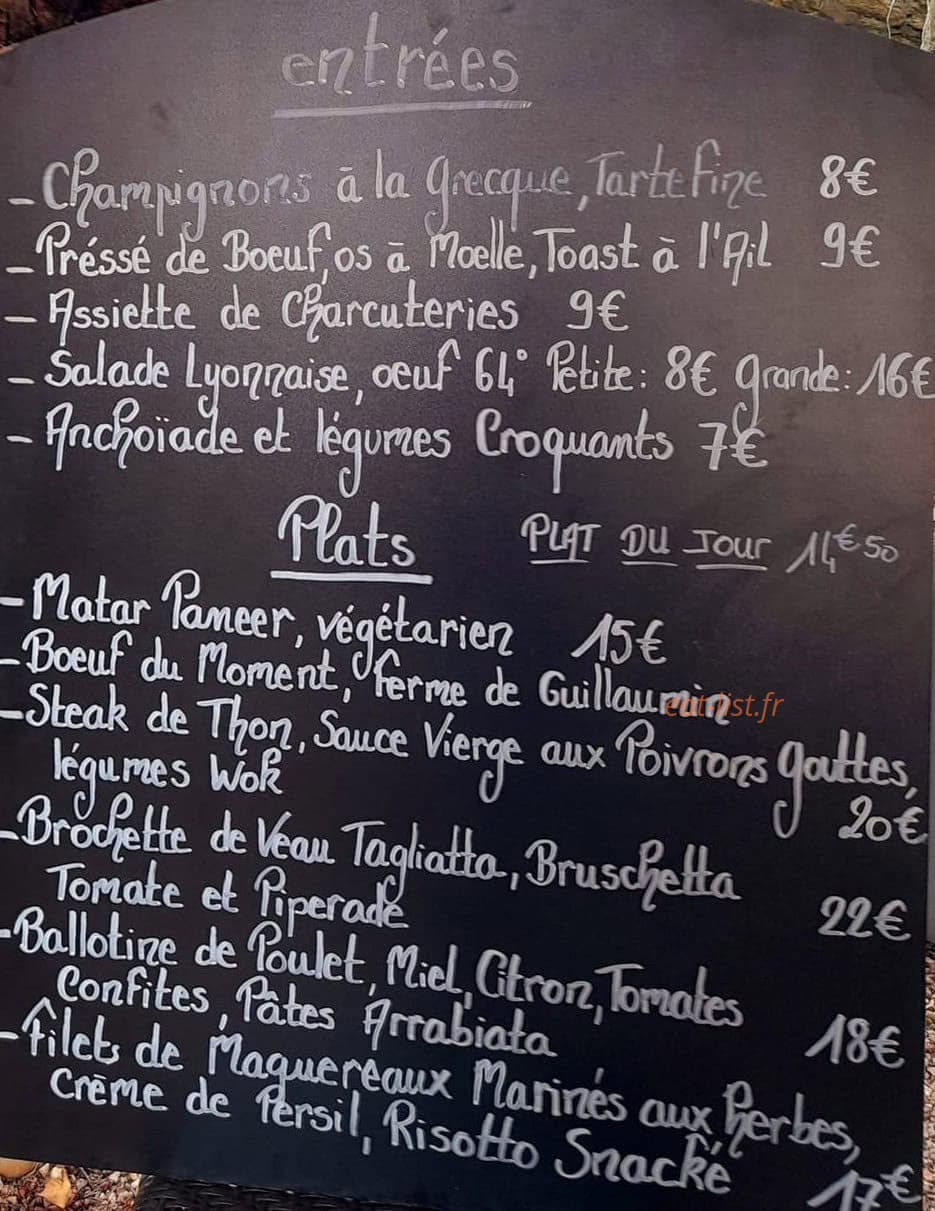 entrées
- Champignons à la Grecque, Tarte Fine 8€
- Préssé de Boeuf, os à Moelle, Toast à l'Ail 9€
- Assiette de Charcuteries 9€
- Salade Lyonnaise, oeuf 64° Petite: 8€ Grande: 16€
- Anchoïade et légumes Croquants 7€
Plats PLAT DU JOUR 14€50
- Matar Paneer, végétarien 15€
- Boeuf du Moment, ferme de Guillaumin
eat-list.fr
- Steak de Thon, Sauce Vierge aux Poivrons Gouttes,
légumes Wok 20€
- Brochette de Veau Tagliatta, Bruschetta
Tomate et Piperade 22€
- Ballotine de Poulet, Miel, Citron, Tomates
Confites, Pâtes Arrabiata 18€
- Filets de Maquereaux Marinés aux herbes,
Crème de Persil, Risotto Snacké 17€